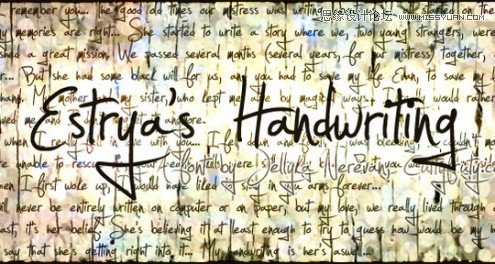 remember you... the good old times our mistress was writing started on the
思缘设计论坛 WWW.MISSYUAN.COM
my memories are right... She started to write a story where we, two young strangers, were
shed a great mission. We passed several months several years, for mistress) together,
er... But she had some black will for us, and you had to save my life Edan, to save my
hang. My mother and my sister, who kept me safe by magical ways. I my life would rather
Estrya's Handwriting
ived me and I don't anymore.
when I really in love with you... I fell down and I was bleeding, I couldn't mo
re unable to rescue
A Font by Jellyka Nerevan Cuttyfruty.com
hen I first woke up, I would have liked in your arms forever...
ill never be entirely written on computer or on paper, but my love, we really lived through
ast, it's her belief. She's believing it at least enough to try to guess how would be my h
say that she's getting right into it... My handwriting is her's as well...